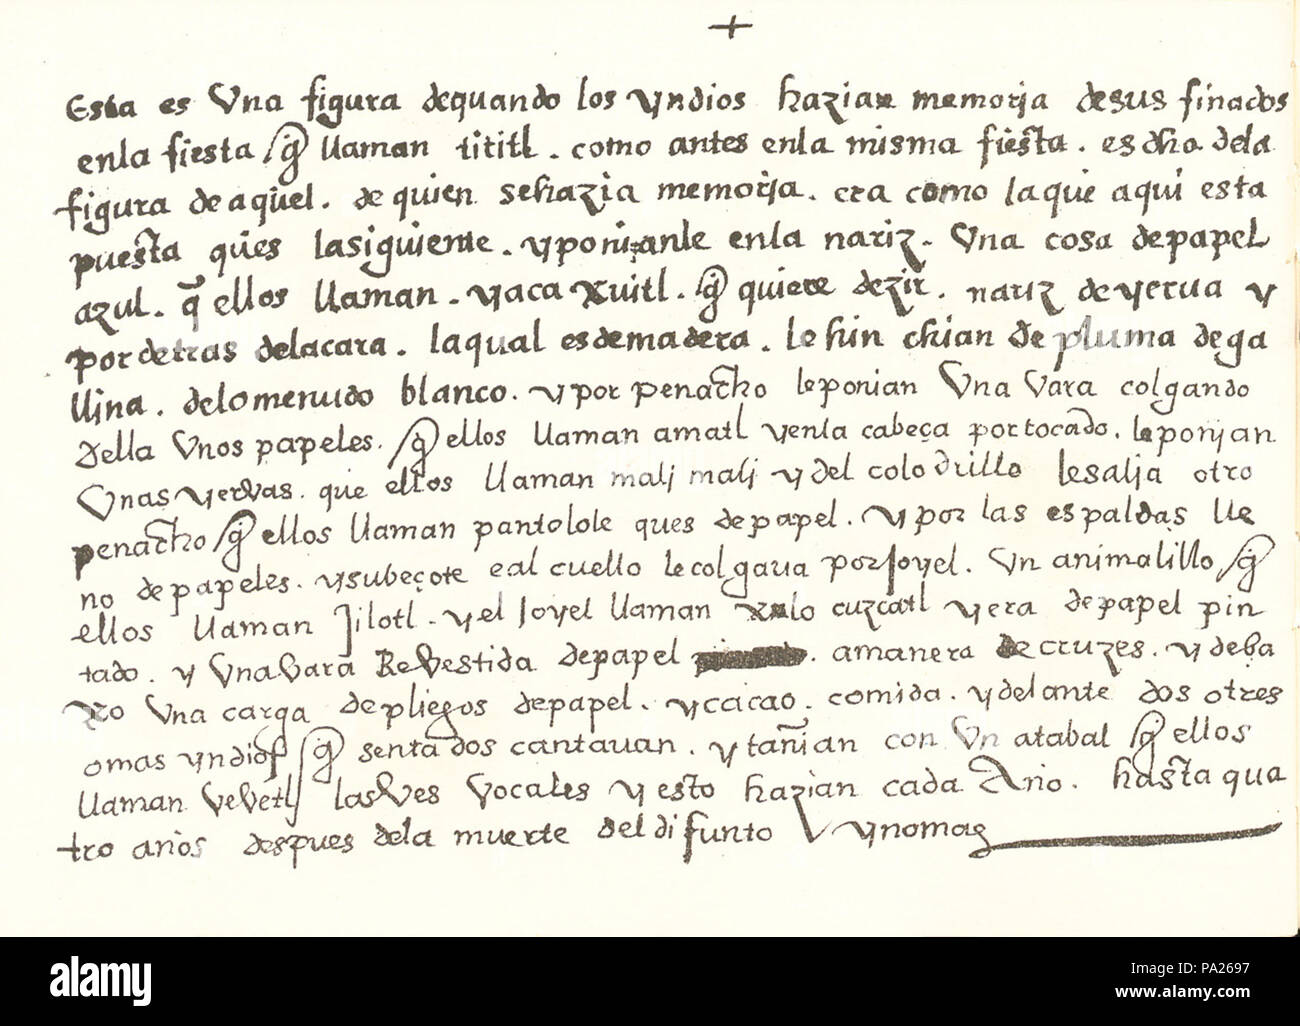 +
Esta es Una figura dequando los yndios hazian memoria desus finados
enla fiesta q̃ llaman tititl. como antes enla misma fiesta. es dha dela
figura de aquel. de quien sehazia memoria. era como laque aqui esta
puesta ques lasiguiente. yponianle enla nariz. Una cosa depapel
azul. q̃ ellos llaman. yaca xuitl. q̃ quiere dezir. nariz de yerua y
por detras delacara. laqual esdemadera. le hin chian de pluma dega
llina. delo menudo blanco. y por penacho leponian Una Vara colgando
della Unos papeles. q̃ ellos llaman amatl yenla cabeça portocado. leponian
Unas yervas. que ellos llaman mali mali y del colodrillo lesalia otro
penacho q̃ ellos llaman pantolole ques depapel. y por las espaldas lle
no de papeles. ysubeçote e al cuello le colgava por Joyel. Un animalillo q̃
ellos llaman Jilotl. y el Joyel llaman xolo cuzcatl y era de papel pin
tado. y Una Vara Revestida depapel. amanera de cruzes. y deba
xo Una carga de pliegos depapel. y cacao. comida. y delante dos otres
omas yndios q̃ senta dos cantavan. y tañian con Un atabal q̃ ellos
llaman Vevetl lasVes Vocales y esto hazian cada Año. hasta qua
tro años despues dela muerte del difunto y nomas
alamy
alamy
Image ID: PA2697
www.alamy.com